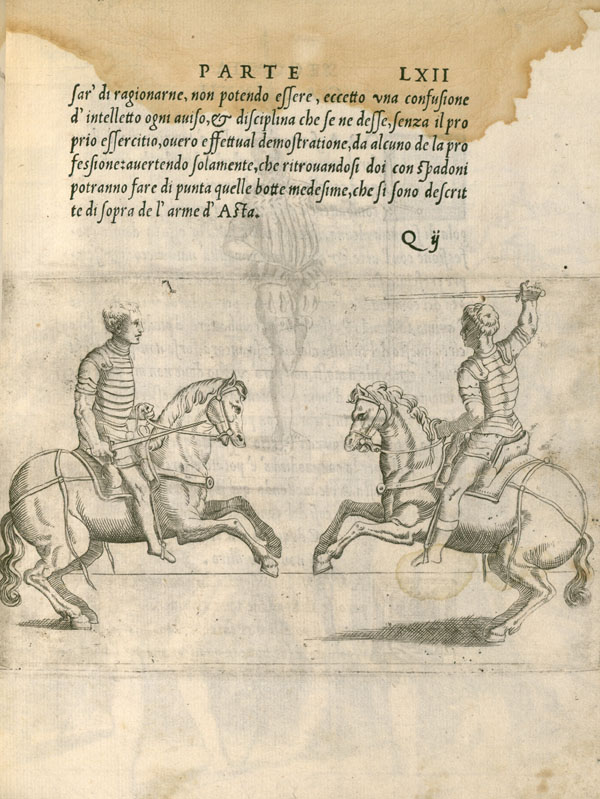 PARTE LXII
sar' di ragionarne, non potendo essere, eccetto vna confusione
d' intelletto ogni auiso, & disciplina che se ne desse, senza il pro
prio essercitio, ouero effettual demostratione, da alcuno de la pro
fessione: auertendo solamente, che ritrouandosi doi con spadoni
potranno fare di punta quelle botte medesime, che si sono descrit
te di sopra de l' arme d' Asta.
Q ij